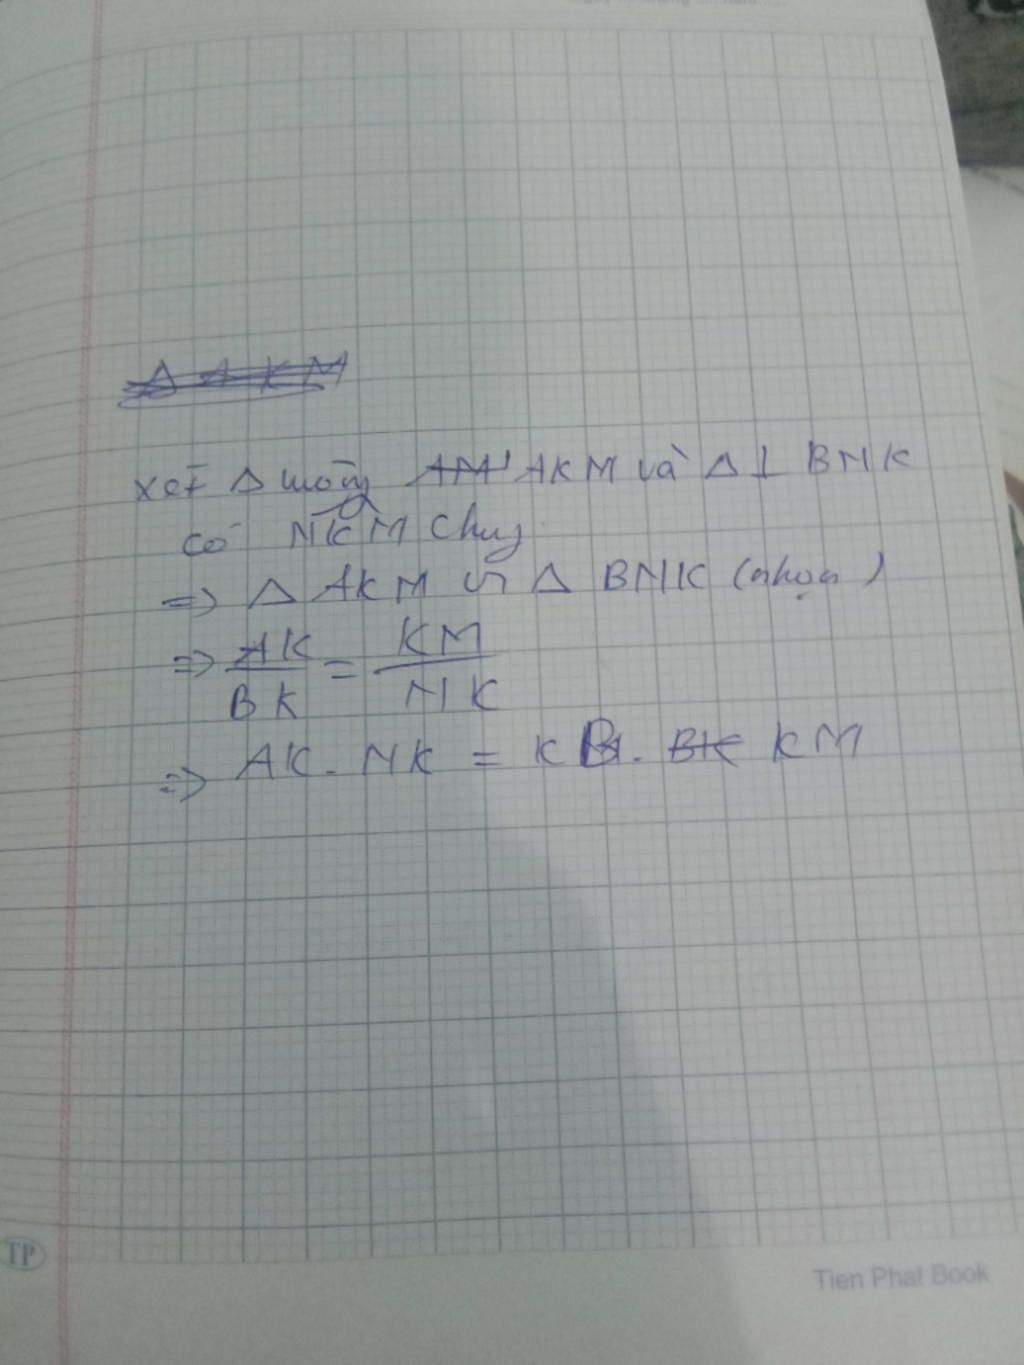 Δ AKM
xét Δ vuông AM AKM và Δ⊥ BNK
có NKM chung
=> Δ AKM ∽ Δ BNK (nhọn)
=> AK/BK = KM/NK
=> AK. NK = KB. BK KM
TP
Tien Phat Book